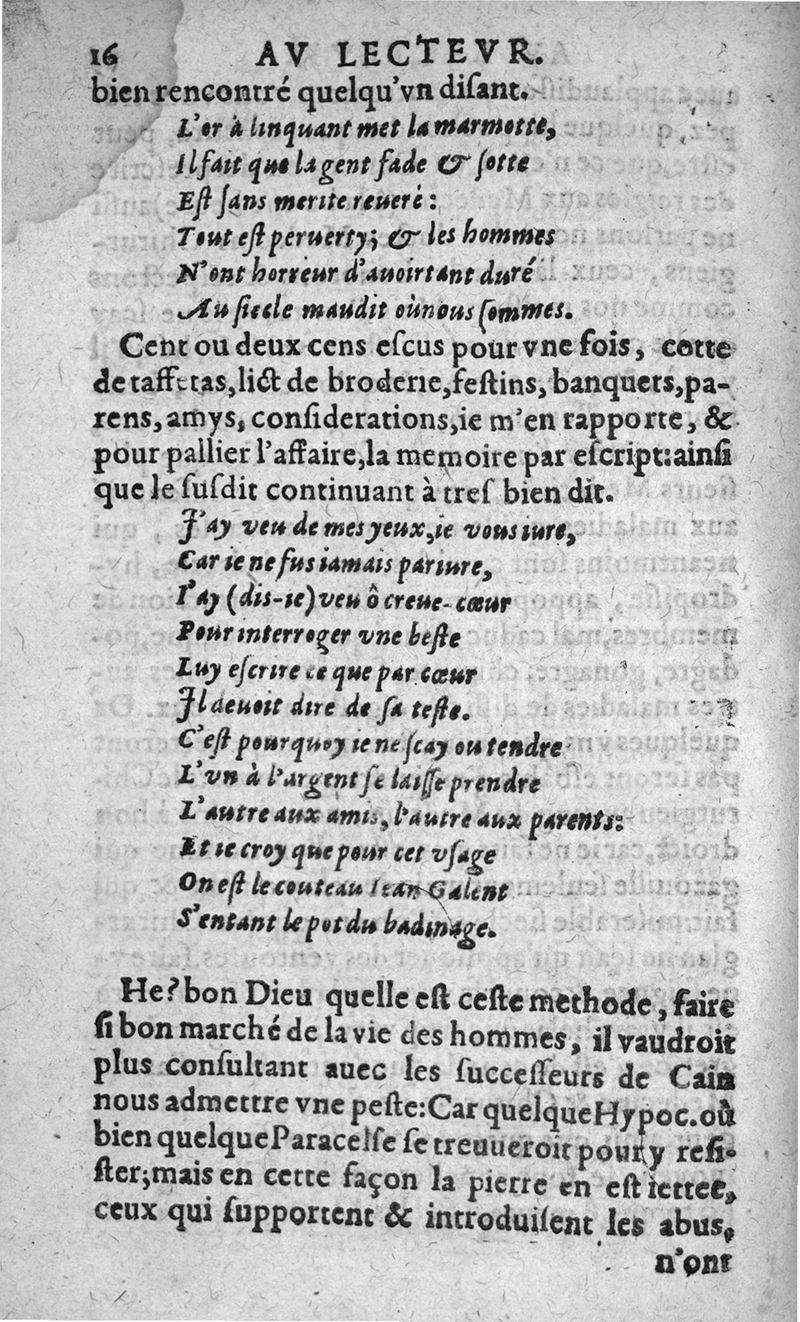 16 AV LECTEVR.
bien rencontré quelqu'vn diſant.
L'or à linquant met la marmotte,
Il fait que la gent fade & ſotte
Eſt ſans merite reueré :
Tout eſt peruerty; & les hommes
N'ont horreur d'auoir tant duré
Au ſiecle maudit où nous ſommes.
Cent ou deux cens eſcus pour vne fois, cotte
de taffetas, lict de broderie, feſtins, banquets, pa-
rens, amys, conſiderations, ie m'en rapporte, &
pour pallier l'affaire, la memoire par eſcript: ainſi
que le ſuſdit continuant à treſ bien dit.
J'ay veu de mes yeux, ie vous iure,
Car ie ne fus iamais pariure,
I'ay (dis-ie) veu ô creue-cœur
Pour interroger vne beſte
Luy eſcrire ce que par cœur
Il deuoit dire de ſa teſte.
C'eſt pourquoy ie ne ſcay ou tendre
L'vn à l'argent ſe laiſſe prendre
L'autre aux amis, l'autre aux parents:
Et ie croy que pour cet vſage
On eſt le couteau Iean Galent
S'entant le pot du badinage.
He? bon Dieu quelle eſt ceſte methode, faire
ſi bon marché de la vie des hommes, il vaudroit
plus conſultant auec les ſucceſſeurs de Cain
nous admettre vne peſte: Car quelque Hypoc. où
bien quelque Paracelſe ſe treuueroit pour y reſi-
ſter; mais en cette façon la pierre en eſt iettee,
ceux qui ſupportent & introduiſent les abus,
n'ont